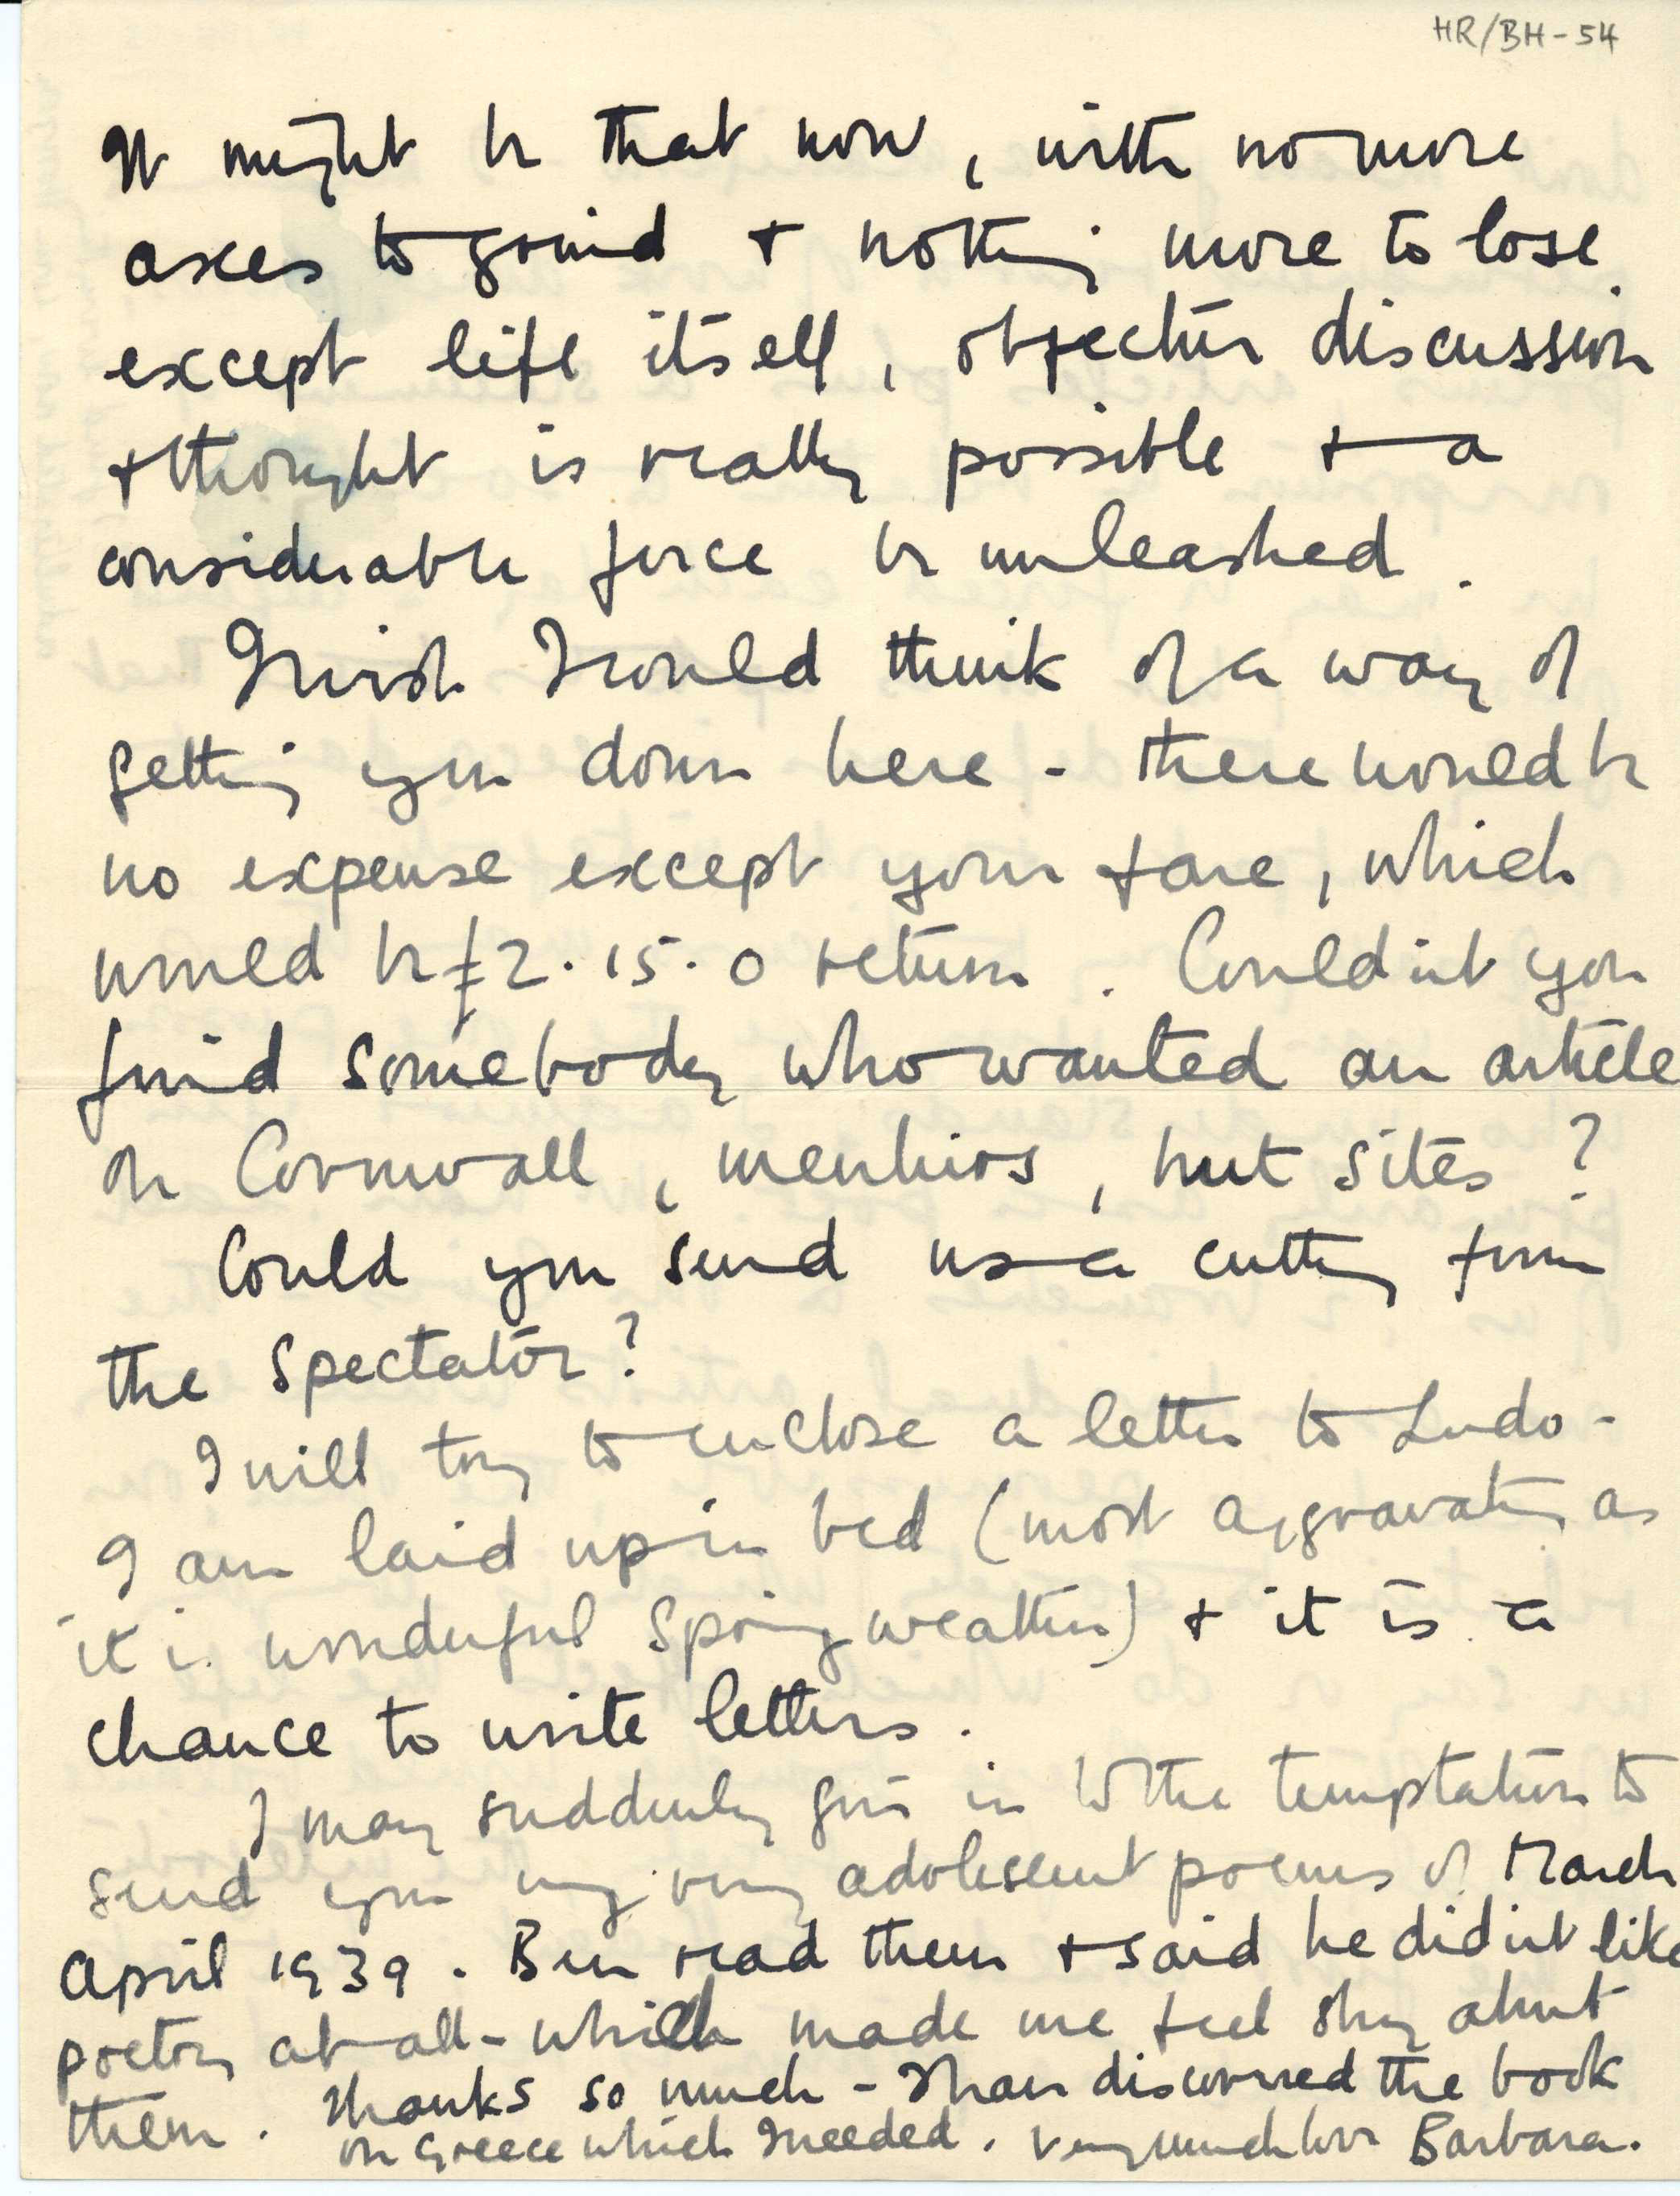 HR/BH-54
It might be that now, with no more
axes to grind + nothing more to lose
except life itself, objective discussion
+ thought is really possible + a
considerable force be unleashed.
I wish I could think of a way of
getting you down here - there would be
no expense except your fare, which
would be £2.15.0 return. Couldn't you
find somebody who wanted an article
on Cornwall, menhirs, hut sites?
Could you send us a cutting from
the Spectator?
I will try to enclose a letter to Ludo -
I am laid up in bed (most aggravating as
it is wonderful Spring weather) + it is a
chance to write letters.
I may suddenly give in to the temptation to
send you my very adolescent poems of March
April 1939. Ben read them + said he didn't like
poetry at all - which made me feel shy about
them. Thanks so much - I have discovered the book
on Greece which I needed. Very much love Barbara.